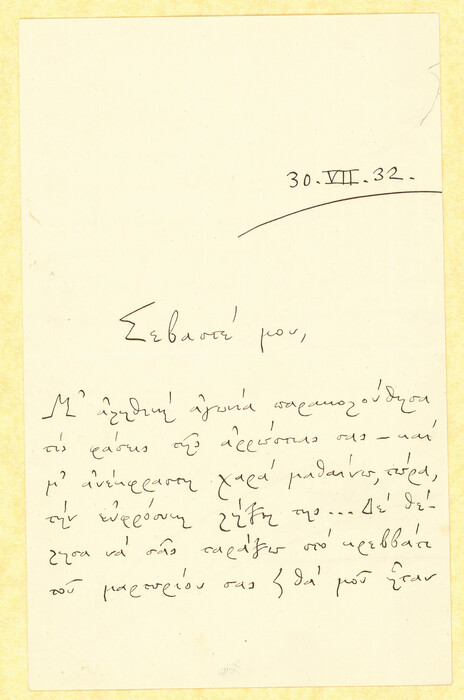 30.VII.32.
Σεβαστέ μου,
Μ' ἀληθινή ἀγωνία παρακολούθησα
τίς φάσεις τῆς ἀρρώστιας σας – καί
μ' ἀνέκφραστη χαρά μαθαίνω, τώρα,
τήν εὐφρόσυνη λήξη της... Δέ θέ-
λησα νά σᾶς ταράξω στό κρεββάτι
τοῦ μαρτυρίου σας θά μοῦ ἦταν